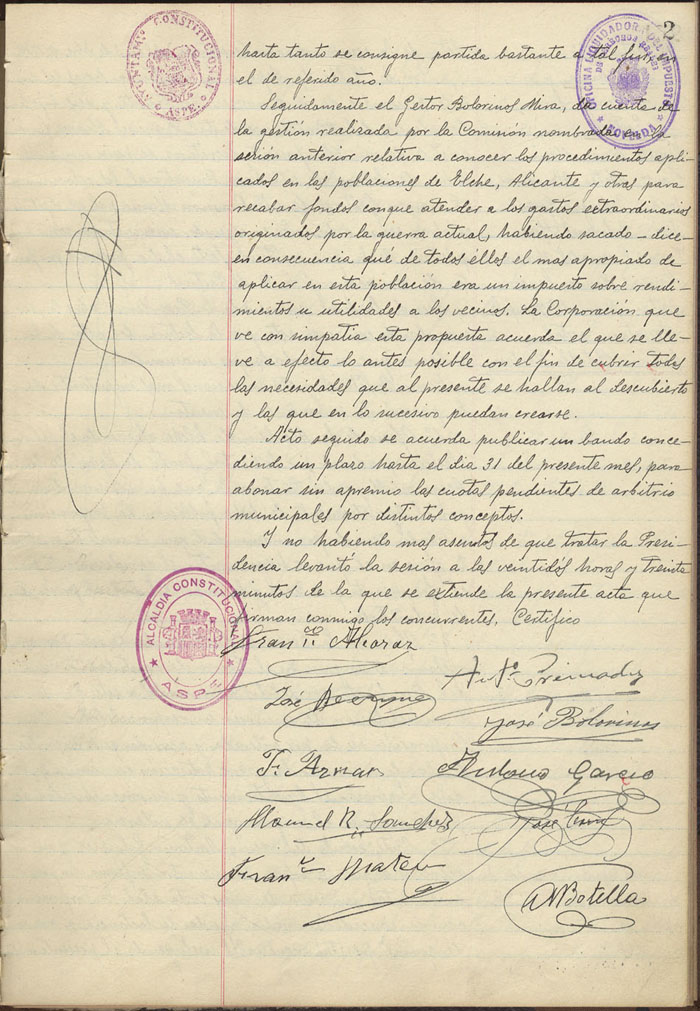 AYUNTAMTO CONSTITUCIONAL
ASPE
2
OFICINA LIQUIDADORA DEL IMPUESTO
DE DERECHOS REALES
NOVELDA
hasta tanto se consigne partida bastante a tal fin en
el de referido año.
Seguidamente el Gestor Bolorinos Mira, da cuenta de
la gestión realizada por la Comisión nombrada en la
sesión anterior relativa a conocer los procedimientos apli-
cados en las poblaciones de Elche, Alicante y otras para
recabar fondos conque atender a los gastos extraordinarios
originados por la guerra actual, habiendo sacado - dice-
en consecuencia qué de todos éllos el mas apropiado de
aplicar en esta población era un impuesto sobre rendi-
mientos u utilidades a los vecinos. La Corporación que
ve con simpatia esta propuesta acuerda el que se lle-
ve a efecto lo antes posible con el fin de cubrir todas
las necesidades que al presente se hallan al descubierto
y las que en lo sucesivo puedan crearse.
Acto seguido se acuerda publicar un bando conce-
diendo un plazo hasta el dia 31 del presente mes, para
abonar sin apremio las cuotas pendientes de arbitrio
municipales por distintos conceptos.
Y no habiendo mas asuntos de que tratar la Presi-
dencia levantó la sesión a las ventidos horas y treinta
minutos de la que se extiende la presente acta que
firman conmigo los concurrentes. Certifico
ALCALDIA CONSTITUCIONAL
ASPE
Franco Alcaraz
José
Anto.
José Bolorinos
F. Aznar
Antonio Garcia
Manuel R. Sanchez
José
Franco Mateo
A Botella